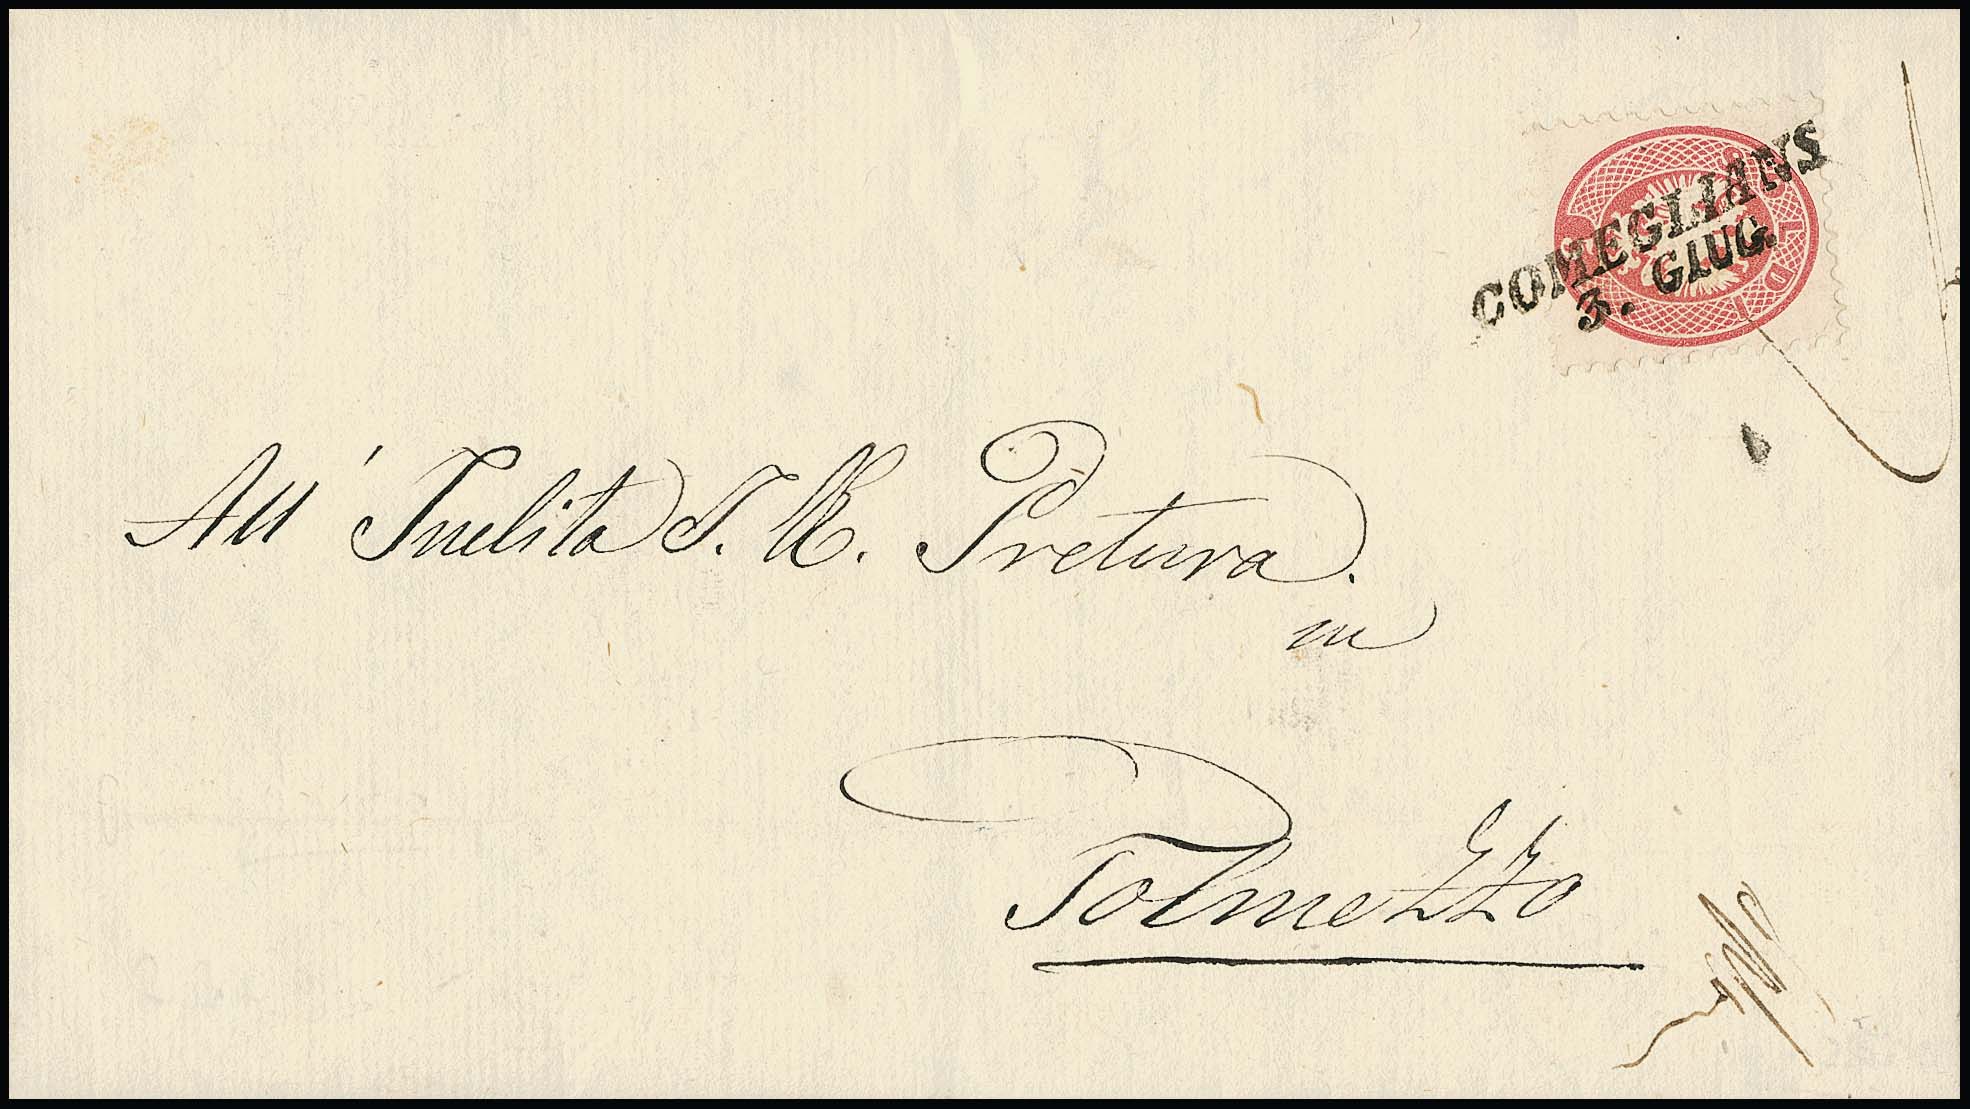 COMEGLIANS
3. GIUG.
SOLDI
All' Inclita I. R. Pretura.
in
Tolmezzo